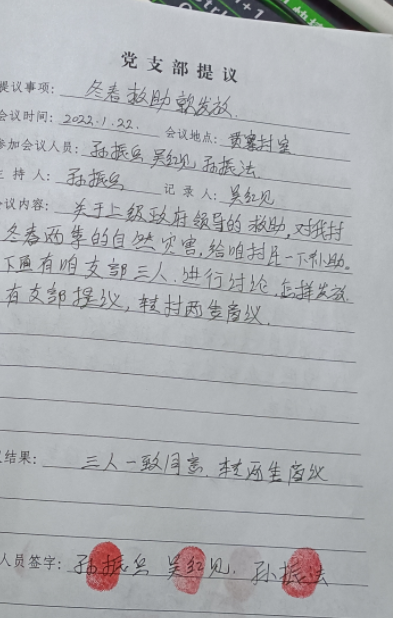 党支部提议
提议事项: 冬春救助款发放.
会议时间: 2022.1.22. 会议地点: 黄寨村室
参加会议人员: 孙振兵 吴红见 孙振法
主持人: 孙振兵 记录人: 吴红见
会议内容: 关于上级政府领导的救助,对我村
冬春两季的自然灾害,给咱村民一下补助。
下面有咱支部三人.进行讨论.怎样发放.
有支部提议,转村两委商议.
结果: 三人一致同意.转两委商议
人员签字: 孙振兵 吴红见. 孙振法